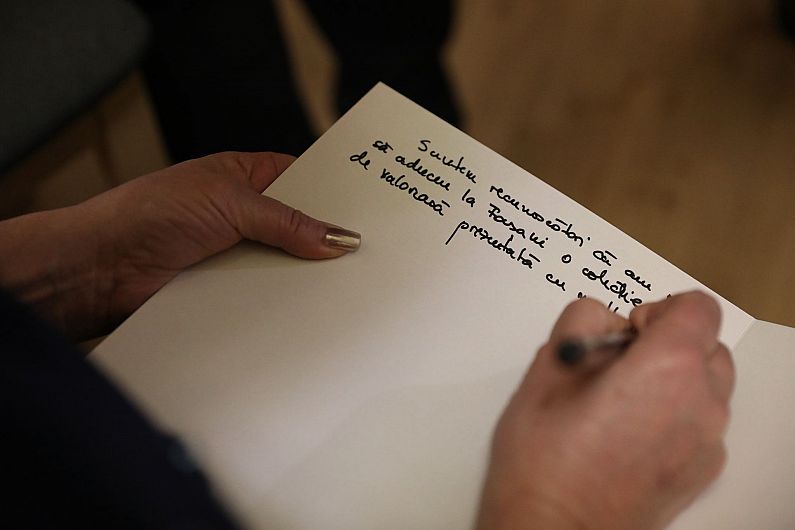 Suntem recunoscători că am
să aducem la Frasani o colecție
de valoroasă prezentată cu